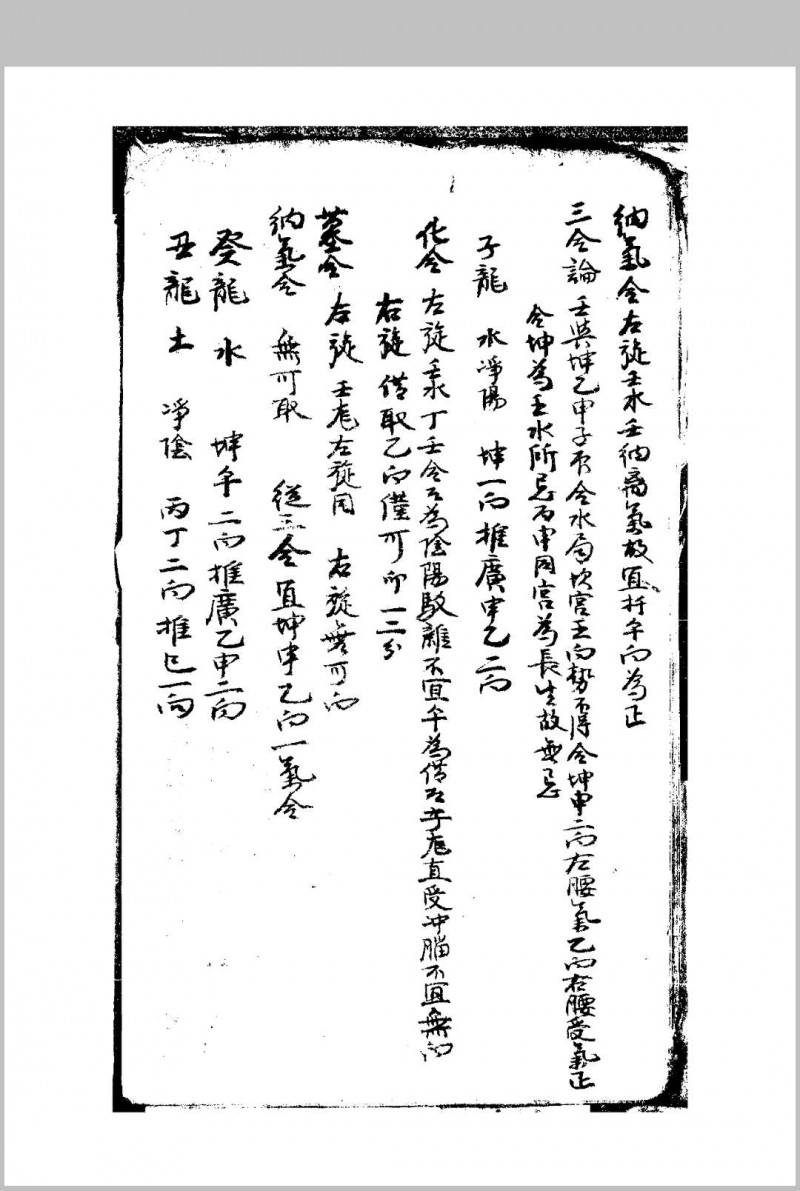 納氣合左旋壬水壬納离氣故宜扦午向為正
三合論壬與坤乙申子辰合水局坎宮壬向勢不得合坤申二向左腰氣乙向右腰受氣正
合坤為壬水所忌而申同宮為長生故無忌
子龍 水淨陽 坤一向推廣申乙二向
化合 左旋壬水丁壬合不為陰陽駁雜不宜午為借左子龙直受冲腦不宜無向
右旋 借取乙向僅可卯一二分
墓合 左旋 壬龙左旋同 右旋無可向
納氣合 無可取 從三合宜坤申乙向一氣合
癸龍 水 坤午二向推廣乙申二向
丑龍 土 淨陰 丙丁二向推巳一向